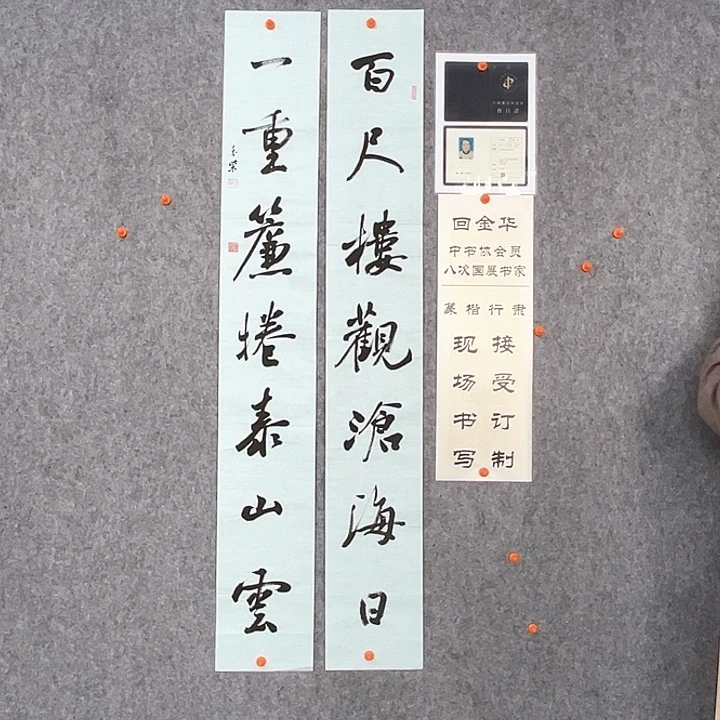 百尺樓觀滄海日
一重簾捲泰山雲
金華
回金华
中书协会员
八次国展书家
篆楷行隶
接受订制
现场书写